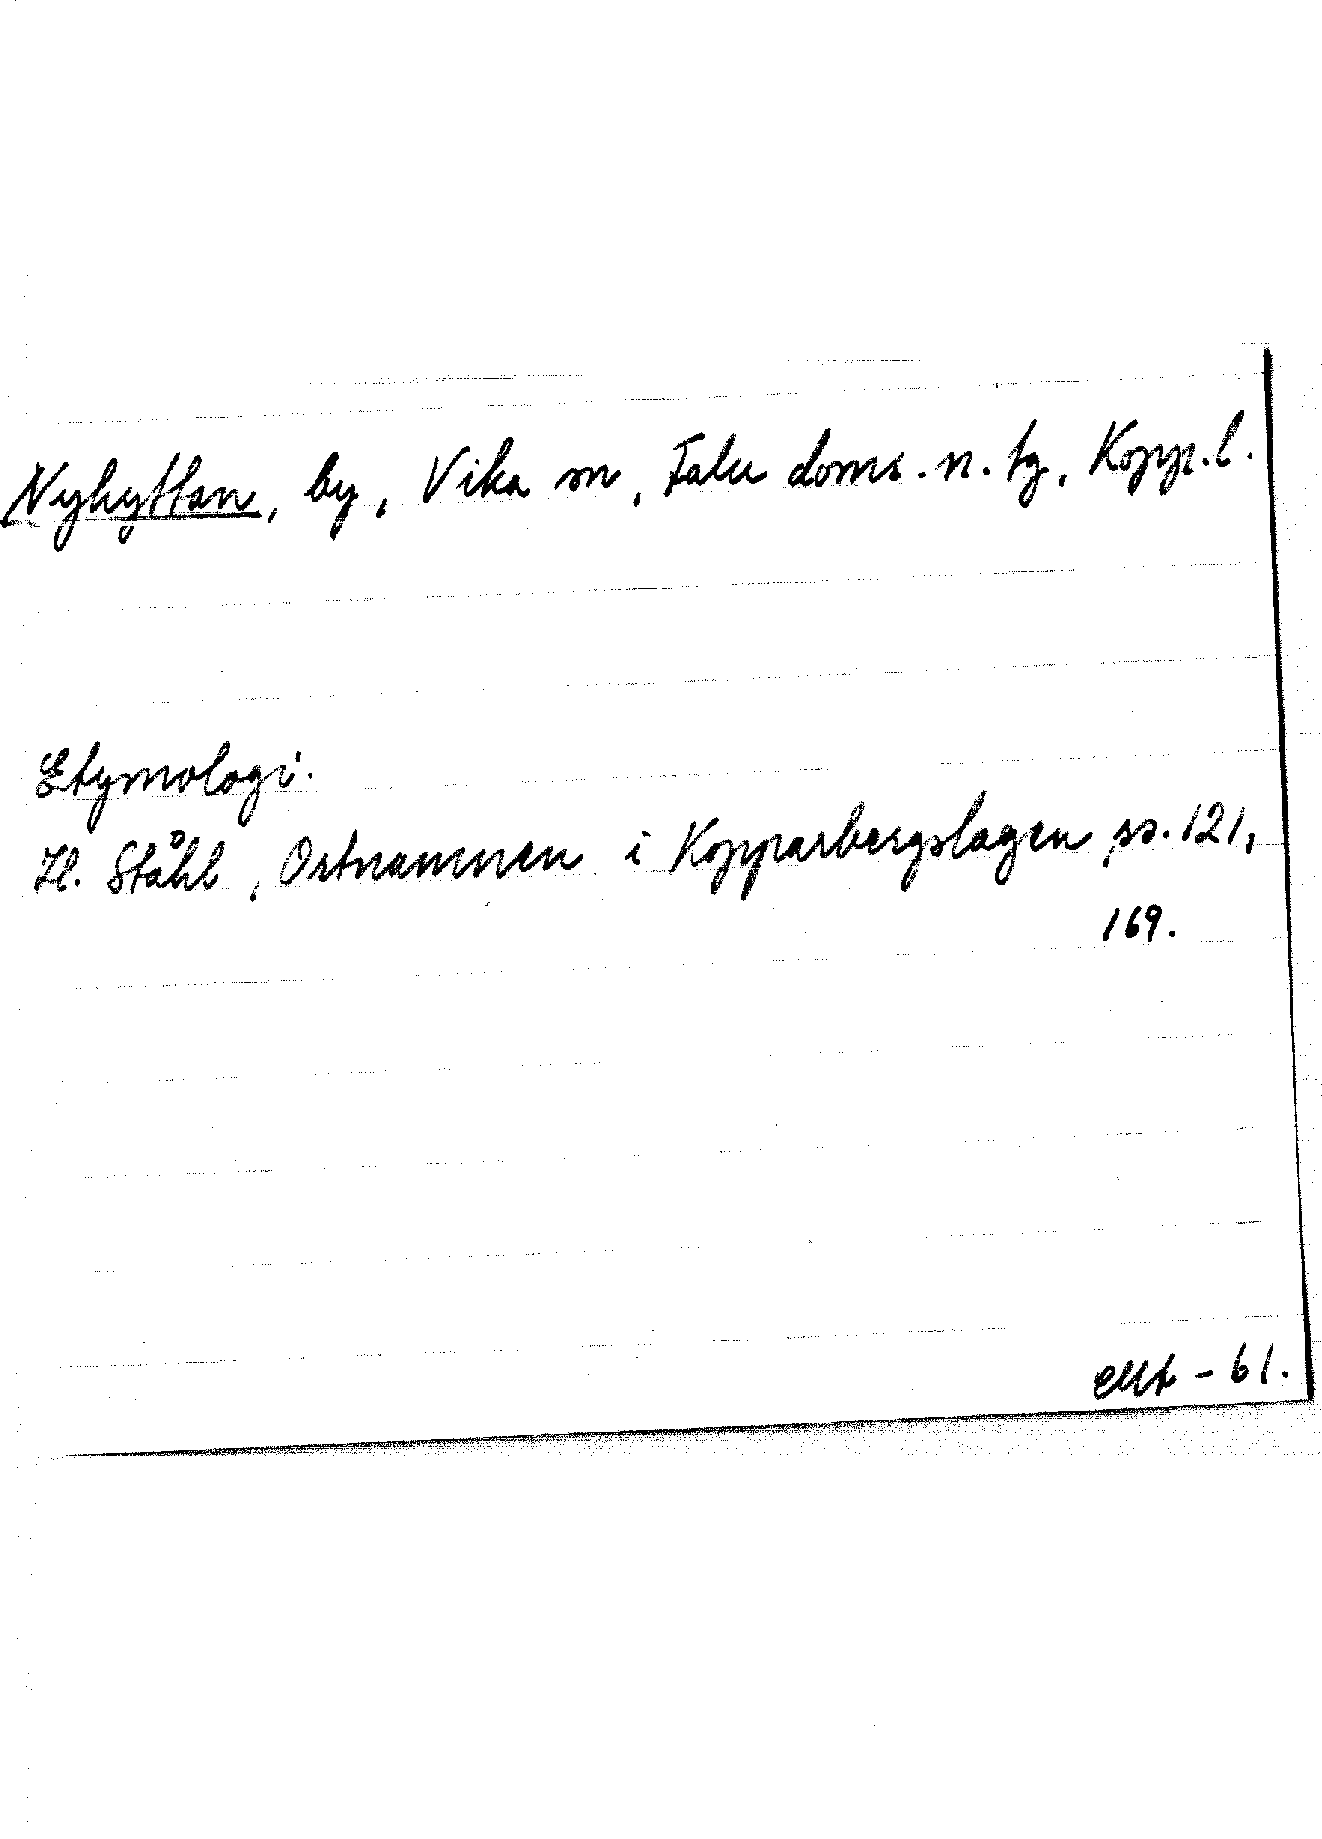 Nyhyttan, by, Vika sn, Falu doms.n.tg, Kopp.l.
Etymologi.
H. Ståhl, Ortnamnen i Kopparbergslagen ss. 121,
169.
-61.